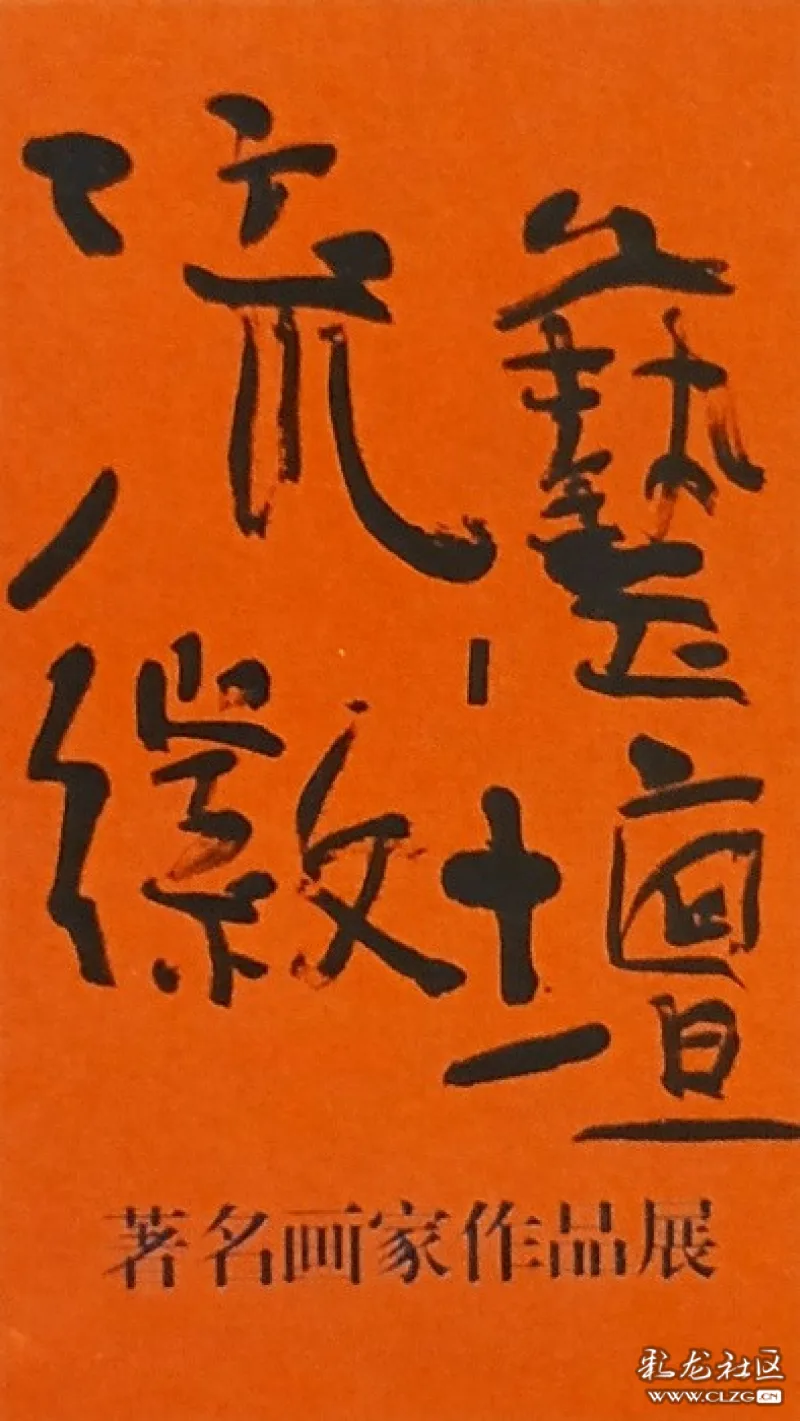 藝壇
流徽
著名画家作品展
彩龙社区
WWW.CLZG.CN